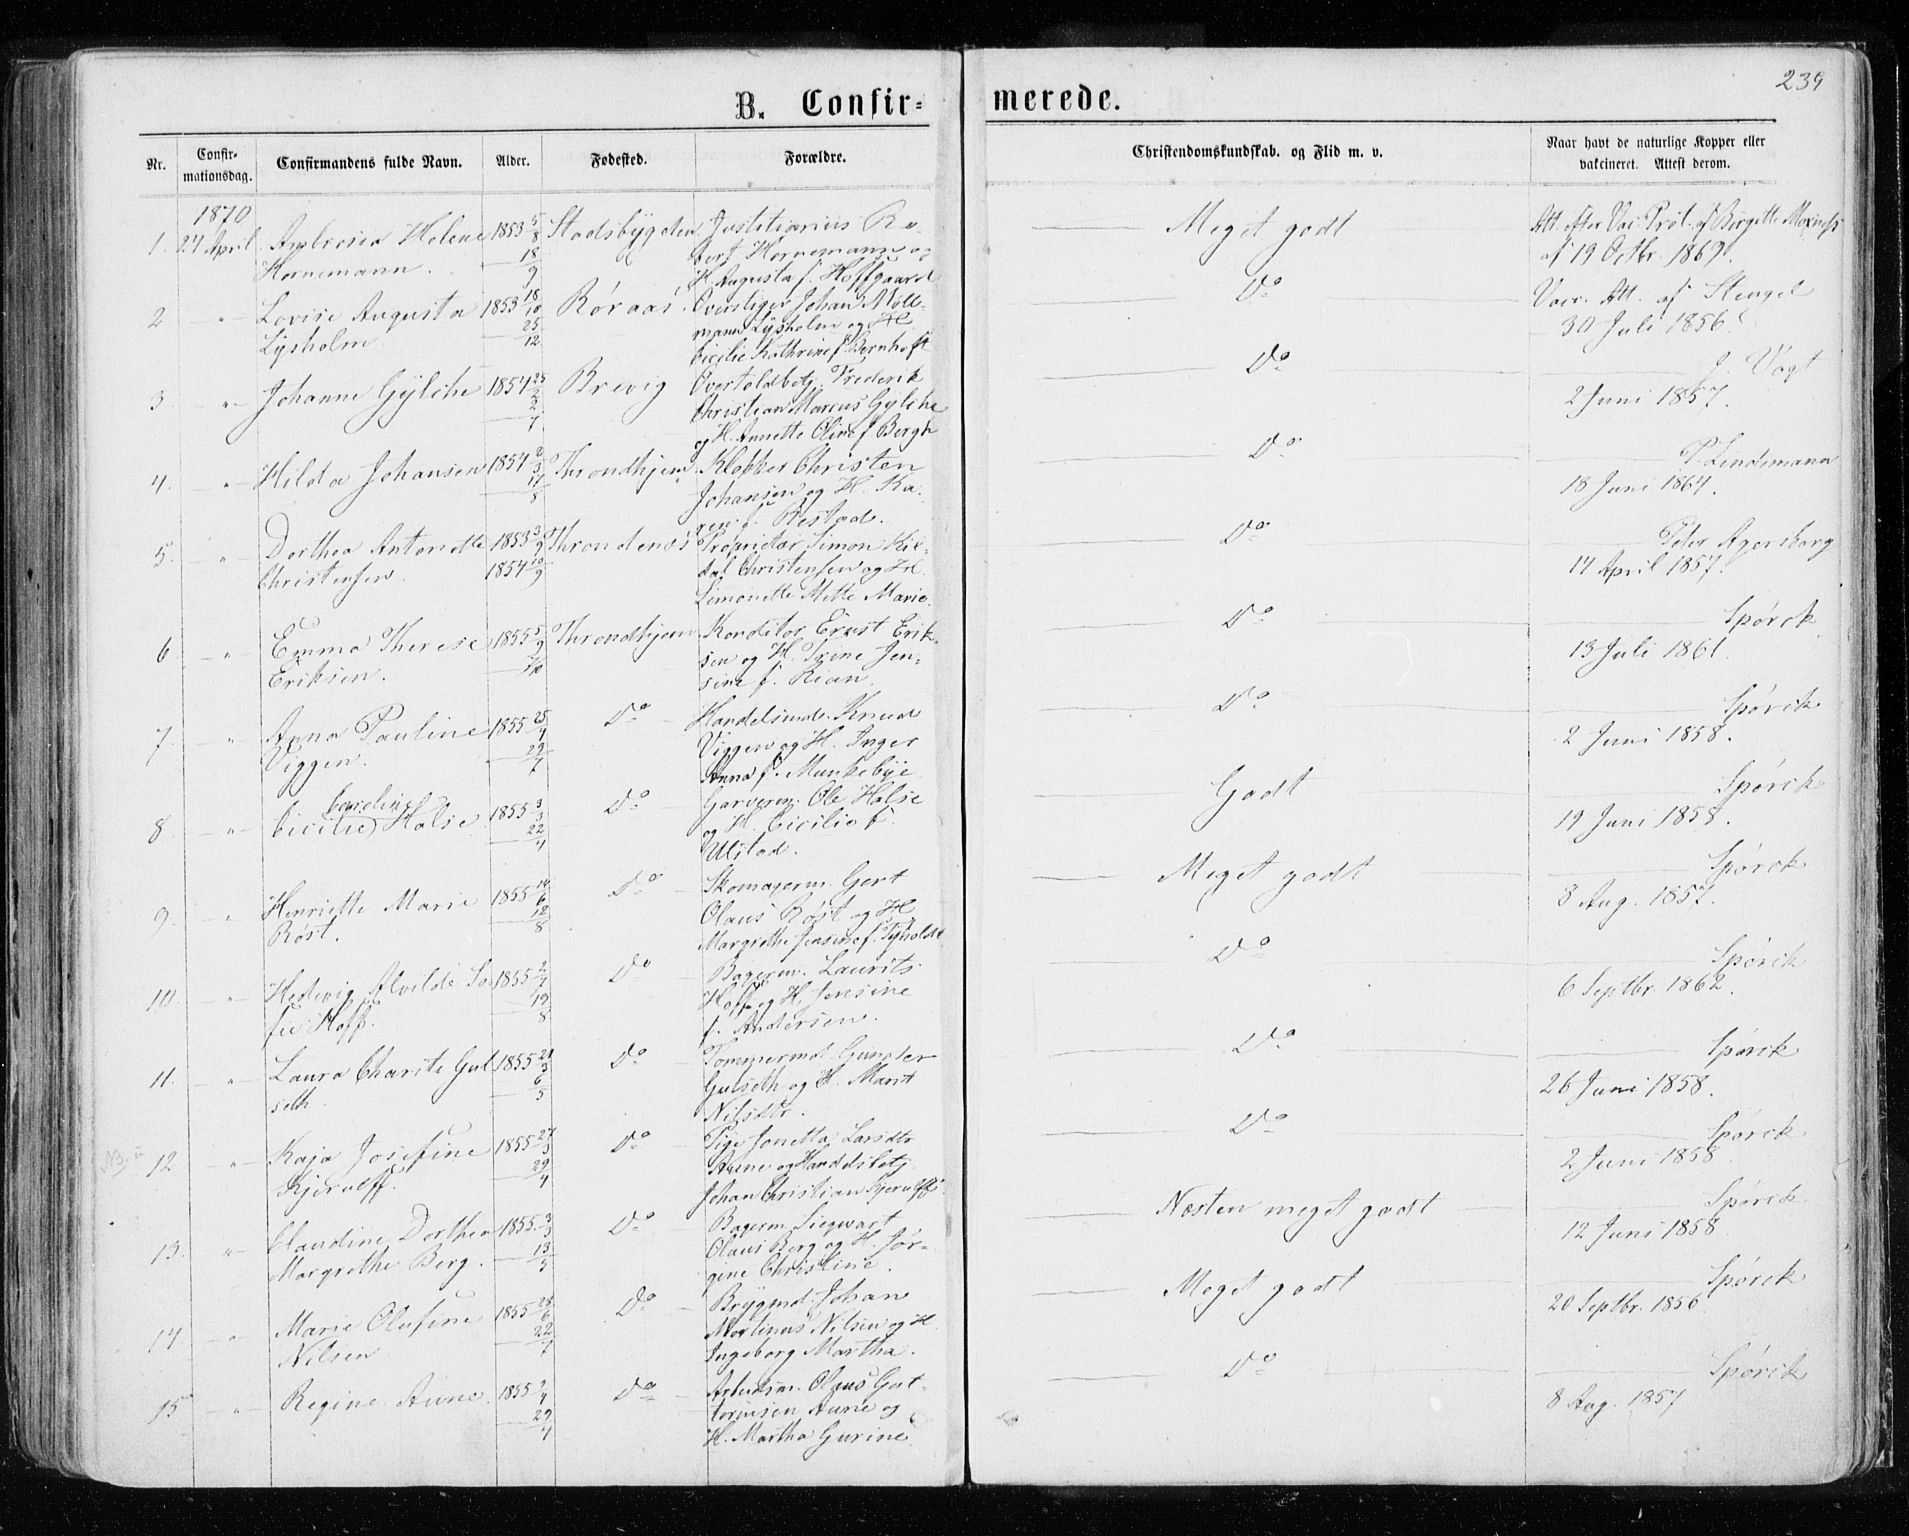 239
B. Confirmerede.
Nr. Confirmationsdag. Confirmandens fulde Navn. Alder. Fødested. Forældre. Christendomskundskab. og Flid m. v. Naar havt de naturlige Kopper eller vakcineret. Attest derom.
1870
1. 24 April Ambrosia Helene 1853 5/8 Stadsbygden Justitiarius Ro- Meget godt Att. efter Vac. Prot. af Borgitte Moxness
Hornemann. 18/9 bert Hornemann og af 19 Octbr. 1869.
H. Augusta f. Hoffgaard
2 " Lovise Augusta 1853 18/10 Røraas. Overstiger Johan Møll- Do Vacc. Att. af Stengel
Lysholm 25/12 mann Lysholm og H. 30 Juli 1856.
Cicilie Kathrine f. Bernhoft
3 " Johanne Gylche 1854 25/2 Brevig Overtoldbetj. Frederik Do J. Vogt
2/7 Christian Marcus Gylche 2 Juni 1857.
og H. Annette Oline f. Bergh
4. " Hilda Johansen 1854 2/3 Throndhjem Klokker Christen Do P. Lindemann
17/8 Johansen og H. Ka- 18 Juni 1864.
ren f. Restad.
5. " Dorthea Antonette 1853 3/9 Throndenæs Proprietær Simon Kil- Do Peter Agersborg
Christensen 1854 10/9 dal Christensen og H. 14 April 1857.
Simonette Mette Marie.
6 " Emma Therese 1855 5/9 Throndhjem Konditor Ernst Erik- Do Spørck
Eriksen. /10 sen og H. Trine Jen- 13 Juli 1861.
sine f. Rian.
7. " Anna Pauline 1855 25/4 Do Handelsmd. Knud Do Spørck
Viggen. 29/7 Viggen og H. Inger 2 Juni 1858.
Anna f. Munkebye
Caroline
8. " Cicilie Halse 1855 3/3 Do Garverm. Ole Halse Godt Spørck
22/4 og H. Cicilie f. 19 Juni 1858.
Ulstad.
9. " Henriette Marie 1855 14/6 Do Skomagerm. Gert Meget godt Spørck
Røst. 12/8 Olaus Røst og H. 8 Aug. 1857.
Margrethe Jensine f. Tyholdt
10. " Hedevig Alvilde So- 1855 2/7 Do Bagerm. Laurits Do Spørck
fie Hoff. 19/8 Hoff og H. Jensine 6 Septbr. 1862.
f. Andersen.
11. " Laura Charite Gul- 1855 21/3 Do Tømmermd. Gunder Do Spørck
seth 6/5 Gulseth og H. Marit 26 Juni 1858.
Nilsdtr.
12 " Kaja Josefine 1855 27/3 Do Pige Jonetta Larsdtr Do Spørck
Kjerulff. 29/4 Aune og Handelsbetj. 2 Juni 1858
Johan Christian Kjerulff.
13. " Claudine Dorthea 1855 3/3 Do Bagerm. Siegwart Næsten meget godt Spørck
Margrethe Berg. 13/5 Olaus Berg og H. Jør- 12 Juni 1858
gine Christine.
14 " Marie Olufine 1855 28/6 Do Brygmd. Johan Meget godt Spørck
Nilsen 22/7 Martinus Nilsen og H. 20 Septbr. 1856
Ingeborg Martha.
15 " Regine Aune. 1855 2/4 Do Arbeidsm. Olaus Gut- Do Spørck
29/4 tormsen Aune og 8 Aug. 1857
H. Martha Gurine